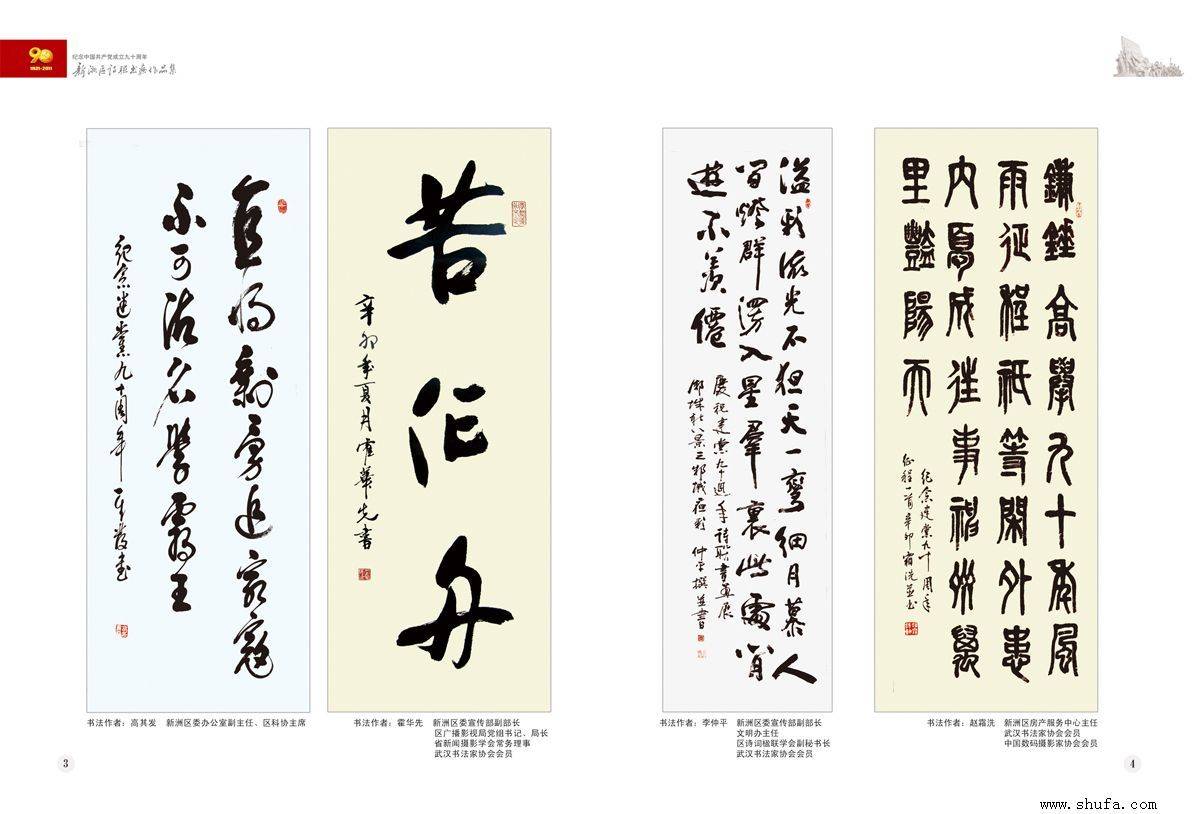 90
1921-2011
纪念中国共产党成立九十周年
新洲区诗联书画作品集
宜将剩勇追穷寇
不可沽名学霸王
纪念建党九十周年 其发书
苦作舟
辛卯年夏月霍华先书
溢彩流光不夜天一弯细月慕人
间灯群漫入星群里此处闲
游不羡仙
庆祝建党九十週年诗联书画展
仲平撰并书
鎌锤高举九十年风
雨征程祇等闲外患
内忧成往事神州万
里艳阳天
纪念建党九十周年
征程一首辛卯霜洗并书
书法作者：高其发 新洲区委办公室副主任、区科协主席
书法作者：霍华先 新洲区委宣传部副部长
区广播影视局党组书记、局长
省新闻摄影学会常务理事
武汉书法家协会会员
书法作者：李仲平 新洲区委宣传部副部长
文明办主任
区诗词楹联学会副秘书长
武汉书法家协会会员
书法作者：赵霜洗 新洲区房产服务中心主任
武汉书法家协会会员
中国数码摄影家协会会员
3
4
www.shufa.com